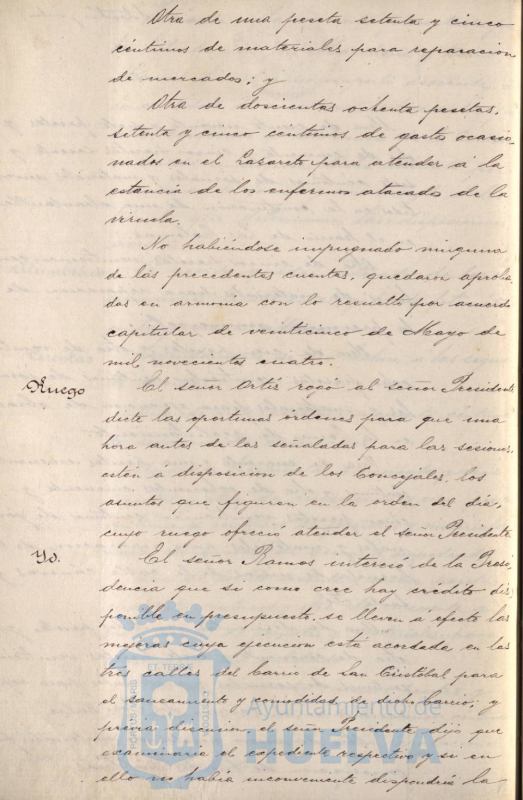 Otra de una peseta setenta y cinco
céntimos de materiales para reparación
de mercados; y
Otra de doscientas ochenta pesetas,
setenta y cinco centimos de gastos ocasio-
nados en el Lazareto para atender á la
estancia de los enfermos atacados de la
viruela.
No habiéndose impugnado ninguna
de las precedentes cuentas, quedaron aproba-
das en armonia con lo resuelto por acuerdo
capitular de veinticinco de Mayo de
mil novecientos cuatro.
Ruego El señor Ortiz rogó al señor Presidente
dicte las oportunas órdenes para que una
hora antes de las señaladas para las sesiones,
estén á disposicion de los Concejales, los
asuntos que figuren en la orden del dia,
cuyo ruego ofreció atender el señor Presidente
Yd. El señor Ramos interesó de la Presi-
dencia que si como cree hay crédito dis-
ponible en presupuesto, se lleven á efecto las
mejoras cuya ejecucion está acordada en las
tres calles del barrio de San Cristobal para
el saneamiento y comodidad de dicho barrio; y
previa discusion el señor Presidente dijo que
examinaria el expediente respectivo y si en
ello no habia inconveniente dispondria la
Ayuntamiento de
HUELVA